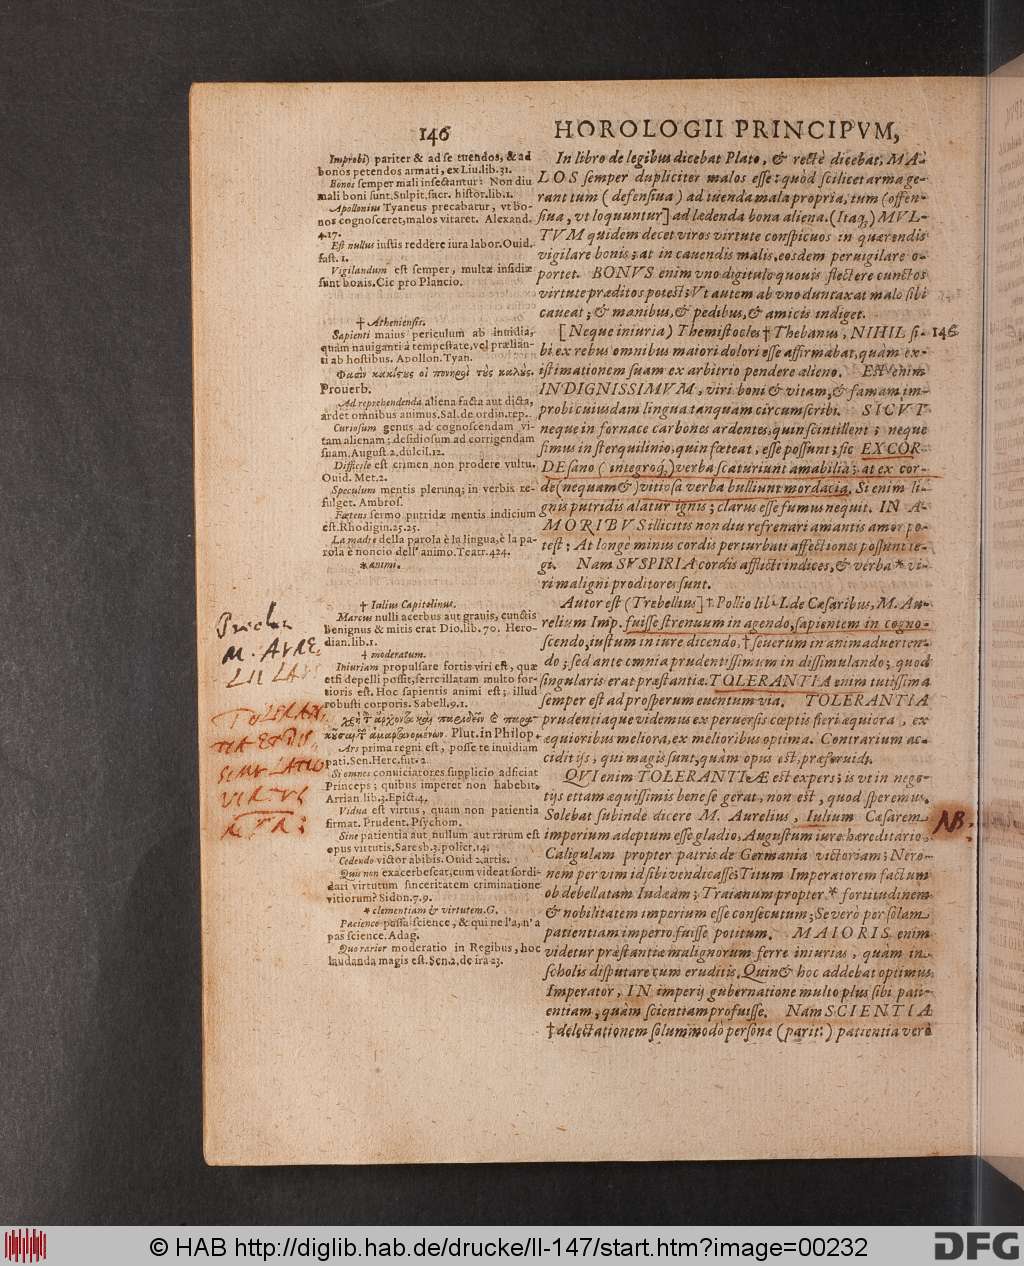 146
HOROLOGII PRINCIPVM,
Improbi) pariter & ad se tuendos, & ad
bonos petendos armati, ex Liu. lib. 31.
Bonos semper mali insectantur: Non diu
mali boni sunt. Sulpit. sacr. histor. lib. 1.
Apollonius Tyaneus precabatur, vt bo-
nos cognosceret, malos vitaret. Alexand.
4.17.
Est nullus iustis reddere iura labor. Ouid.
fast. 1.
Vigilandum est semper, multæ insidiæ
sunt bonis. Cic pro Plancio.
† Atheniensis.
Sapienti maius periculum ab inuidia,
quàm nauiganti à tempestate, vel prælian-
ti ab hostibus. Apollon. Tyan.
Φασὶν κακίστως οἱ πονηροὶ τοὺς καλούς.
Prouerb.
Ad reprehendenda aliena facta aut dicta,
ardet omnibus animus. Sal. de ordin. rep.
Curiosum genus ad cognoscendam vi-
tam alienam; desidiosum ad corrigendam
suam. August. 2. dulcil. 12.
Difficile est crimen non prodere vultu.
Ouid. Met. 2.
Speculum mentis plerunq; in verbis re-
fulget. Ambros.
Fœtens sermo putridæ mentis indicium
est. Rhodigin. 25.25.
La madre della parola è la lingua, è la pa-
rola è noncio dell'animo. Teatr. 424.
* animi.
† Iulius Capitolinus.
Marcus nulli acerbus aut grauis, cunctis
benignus & mitis erat Dio. lib. 70. Hero-
dian. lib. 1.
‡ moderatum.
Iniuriam propulsare fortis viri est, quæ
etsi depelli possit, ferre illatam multo for-
tioris est. Hoc sapientis animi est; illud
robusti corporis. Sabell. 9.1.
Plut. in Philop.
Ars prima regni est, posse te inuidiam
pati. Sen. Herc. fur. 2
Si omnes conuiciatores supplicio adficiat
Princeps; quibus imperet non habebit.
Arrian. lib. 3. Epict. 4.
Vidua est virtus, quam non patientia
firmat. Prudent. Psychom.
Sine patientia aut nullum aut rarum est
opus virtutis. Saresb. 3. policr. 14.
Cedendo victor abibis. Ouid 2. artis.
Quis non exacerbescat, cum videat sordi-
dari virtutum sinceritatem criminatione
vitiorum? Sidon. 7.9.
* clementiam & virtutem. G.
Pacience passa science, & qui ne l'a, n'a
pas science. Adag.
Quo rarior moderatio in Regibus, hoc
laudanda magis est. Sen. 2. de ira 23.
In libro de legibus dicebat Plato, & rectè dicebat, MA-
LOS semper dupliciter malos esse: quòd scilicet arma ge-
rant tum (defensiua) ad tuenda mala propria, tum (offen-
siua, vt loquuntur] ad lædenda bona aliena. (Itaq;) MVL-
TVM quidem decet viros virtute conspicuos in quærendis
vigilare bonis; at in cauendis malis, eosdem peruigilare o-
portet. BONVS enim vno digitulo quouis flectere cunctos
virtute præditos potest; Vt autem ab vno duntaxat malo sibi
caueat; & manibus, & pedibus, & amicis indiget.
[Neque iniuria) Themistocles † Thebanus, NIHIL si- 146
bi ex rebus omnibus maiori dolori esse affirmabat, quàm ex-
istimationem suam ex arbitrio pendere alieno. EST enim
INDIGNISSIMVM, viri boni & vitam, & famam im-
probi cuiusdam lingua tanquam circumscribi. SICVT
neque in fornace carbones ardentes, quin scintillent; neque
fimus in sterquilinio, quin fœteat, esse possunt; sic EX COR-
DE sano (integroq;) verba scaturiunt amabilia; at ex cor-
de (nequam &) vitiosa verba bulliunt mordacia. Si enim li-
gnis putridis alatur ignis; clarus esse fumus nequit. IN A-
MORIBVS illicitis non diu refrenari amantis amor po-
test: At longè minus cordis perturbati affectiones possunt te-
gi. Nam SVSPIRIA cordis afflicti indices, & verba * vi-
ri maligni proditores sunt.
Autor est (Trebellius] † Pollio lib. I. de Cæsaribus, M. Au-
relium Imp. fuisse strenuum in agendo, sapientem in cogno-
scendo, iustum in iure dicendo, ‡ seuerum in animaduerten-
do; sed ante omnia prudentissimum in dissimulando; quod
singularis erat præstantiæ. TOLERANTIA enim tutissima
semper est ad prosperum euentum via. TOLERANTIA
prudentiaque videmus ex peruersis cœptis fieri æquiora, ex
æquioribus meliora, ex melioribus optima. Contrarium ac-
cidit ijs, qui magis sunt, quàm opus est, præferuidi.
QVI enim TOLERANTIÆ est expers; is vt in nego-
tijs ettam æquissimis bene se gerat, non est, quod speremus.
Solebat subinde dicere M. Aurelius, Iulium Cæsarem
imperium adeptum esse gladio, Augustum iure hæreditario,
Caligulam propter patris de Germania victoriam; Nero-
nem per vim id sibi vendicasse; Titum Imperatorem factum
ob debellatam Iudæam; Traianum propter * fortitudinem
& nobilitatem imperium esse consecutum; Se verò per solam
patientiam imperio fuisse potitum. MAIORIS enim
videtur præstantiæ malignorum ferre iniurias, quàm in
scholis disputare cum eruditis. Quin & hoc addebat optimus
Imperator, IN imperij gubernatione multo plus sibi pati-
entiam, quàm scientiam profuisse. Nam SCIENTIA
† delectationem solummodò personæ (parit:) patientia verò
M. AVRE
LII LAVS
TOLERAN
TIA ET DIS
SIMVLATIO
VIRTVS
NB:
© HAB http://diglib.hab.de/drucke/ll-147/start.htm?image=00232
DFG